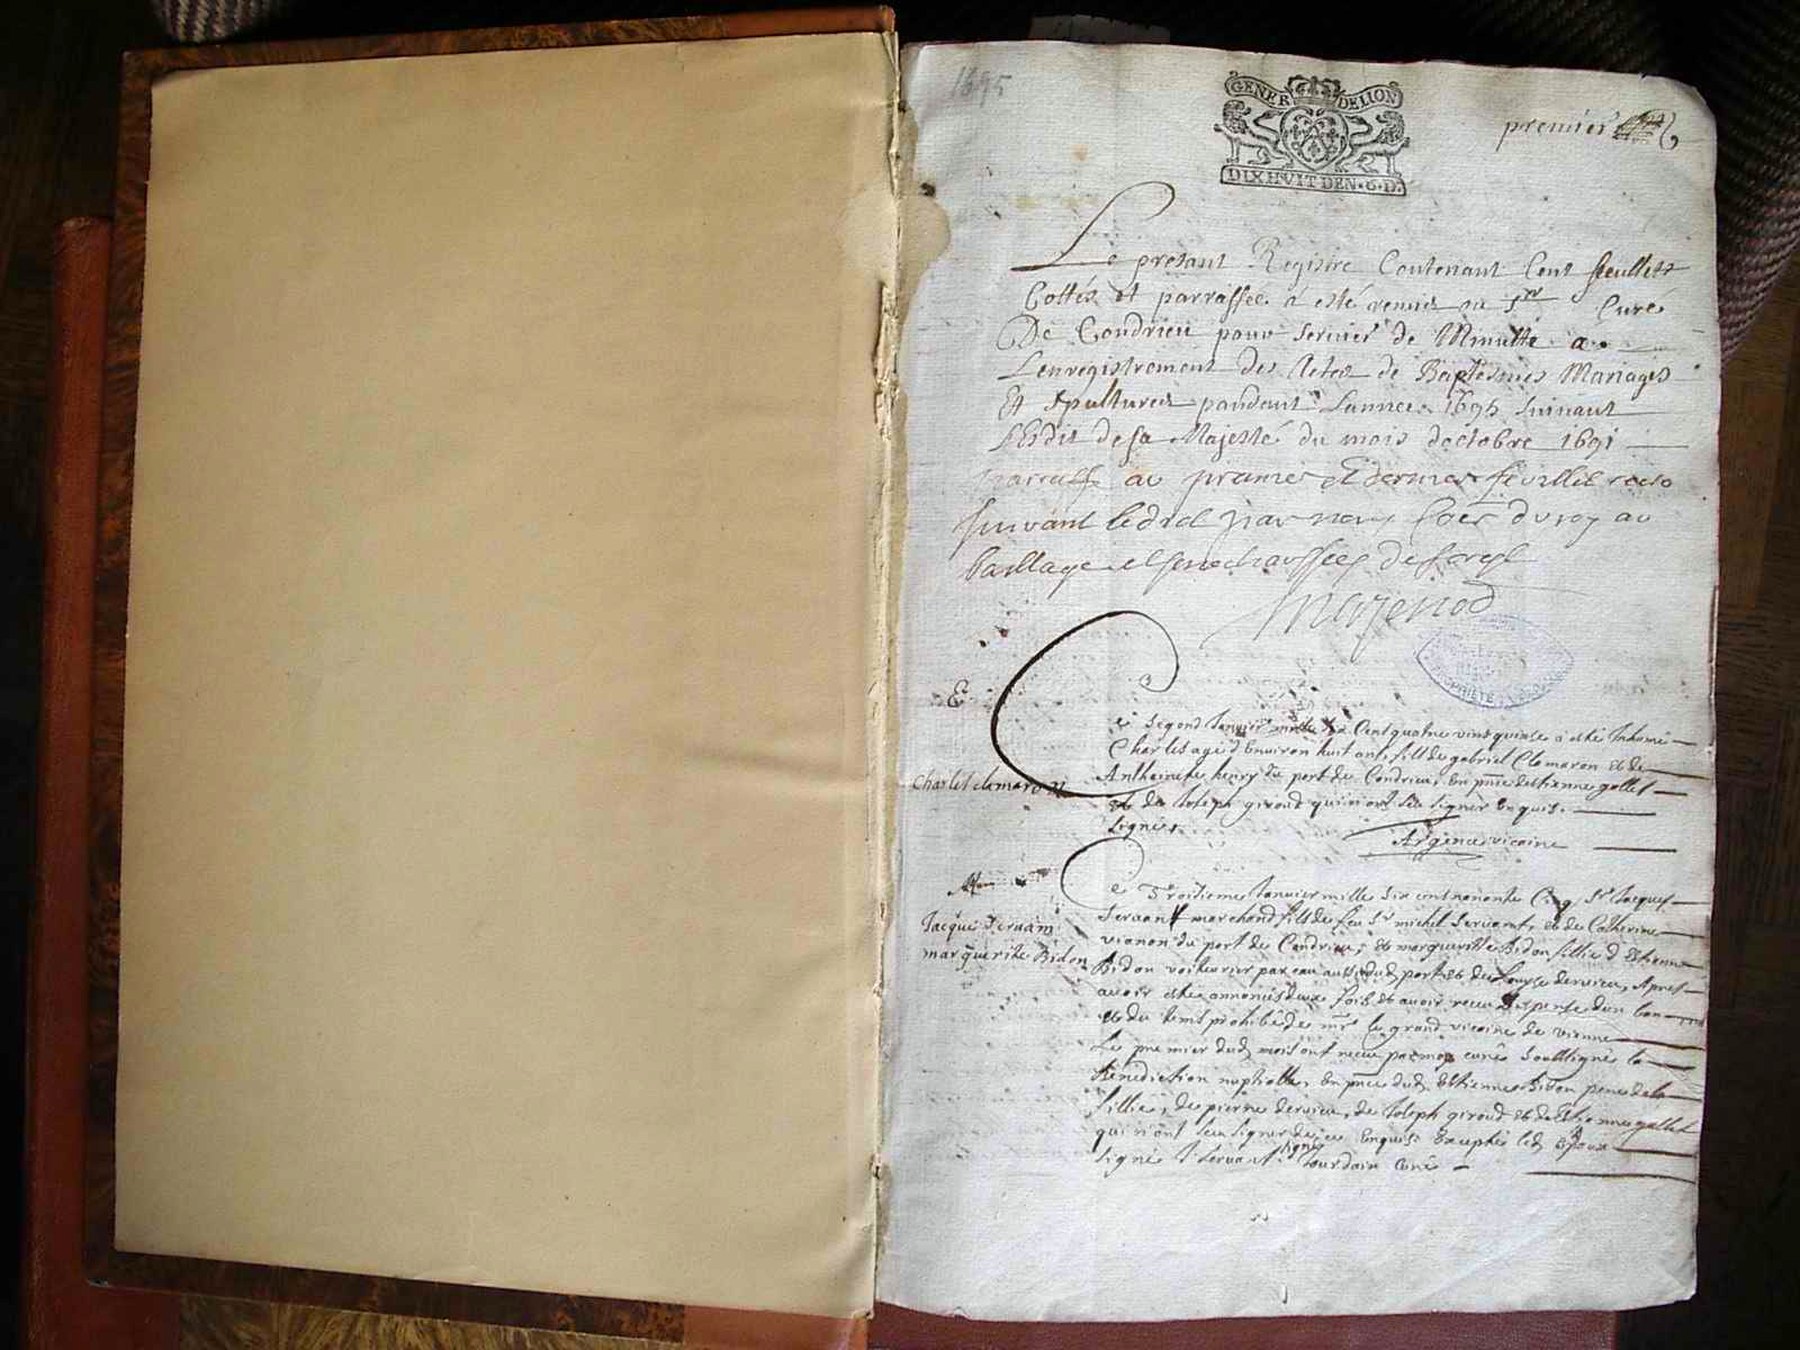 1695
GENER DELION
DIX HVIT DEN. 6. D.
premier
Le présant Registre Contenant Cent feulletz
Cottés et parraffée a esté remis au Sr Curé
De Condrieu pour servir de Minutte a
Lenregistrement des Actes de Baptesmes Mariages
Et Spultures pandant Lannee 1695 suivant
LEdit de sa Majesté du mois doctobre 1691
parraffé au premier et dernier feuillet
suivant ledict par nous du roy au
baillage et senechaussee de forest
Mazenod
PROPRIÉTÉ
E
Charles clemaron
Ce segond Janvier mille six Cent quatre vint quinse a esté Inhumé
Charles agé d'Environ huit ans fils de gabriel Clemaron et de
Antheinete henry du port de Condrieu, En pnce destienne gallet
et de Joseph giroud qui n'ont seu signer Enquis.
signés
Argence vicaire
Jacque Servant
marguerite Bidon
Ce Troisieme Janvier mille six cent nonante Cinq Sr Jacques
Servant marchand fils de feu Sr michel Servant, et de Catherine
vianon du port de Condrieu; et marguerite Bidon fillie d'Estienne
Bidon voiturier par eau aussi dud port et de Louyse dervieu, Apres
avoir esté annoncés deux fois et avoir receu dispense d'un ban
et du tems prohibé de mr le grand vicaire de vienne
Le premier dud mois ont receu par moy curé soussigné la
Bénédiction nuptialle, En pnce dud Estienne Bidon pere de la
fillie, de pierre dervieu, de Joseph giroud et destienne gallet
qui n'ont seu signer de ce Enquis Exceptés led Epoux
signé
signé J Servant Jourdain curé